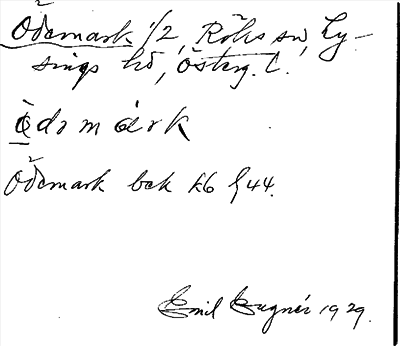 Ödemark 1/2, Röks sn, Ly-
sings hd, Österg. l.
ö̀dəmárk
Ödemark bek K6 § 44.
Emil 1929.